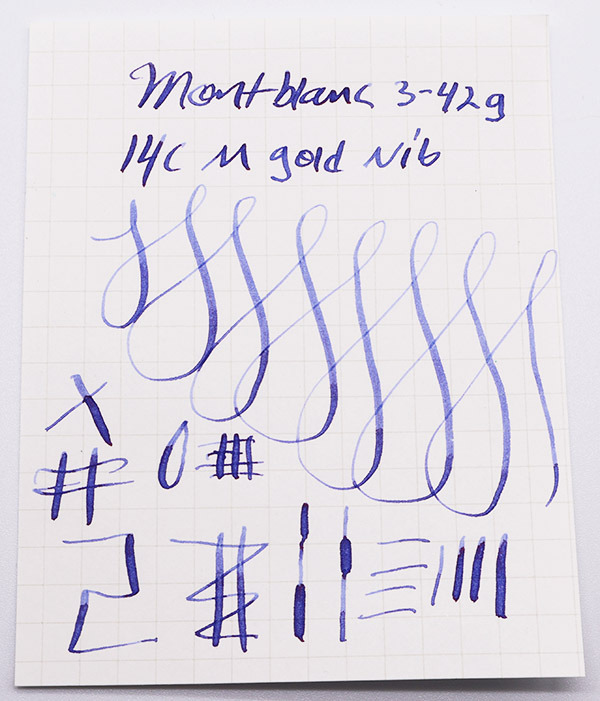 Montblanc 3-42g
14C M gold Nib